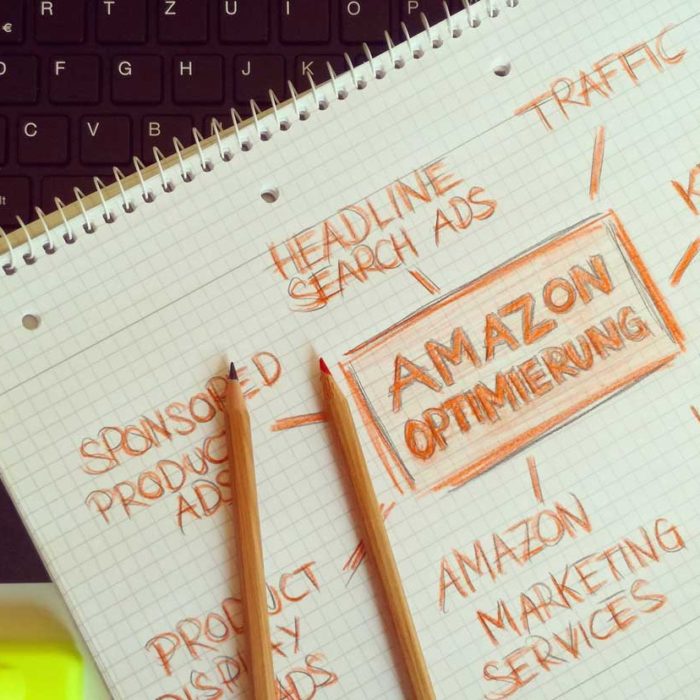 R T Z U I O P
€
D F G H J K
C V B
TRAFFIC
HEADLINE
SEARCH ADS
AMAZON
OPTIMIERUNG
SPONSORED
PRODUCT
ADS
PRODUCT
DISPLAY
ADS
AMAZON
MARKETING
SERVICES